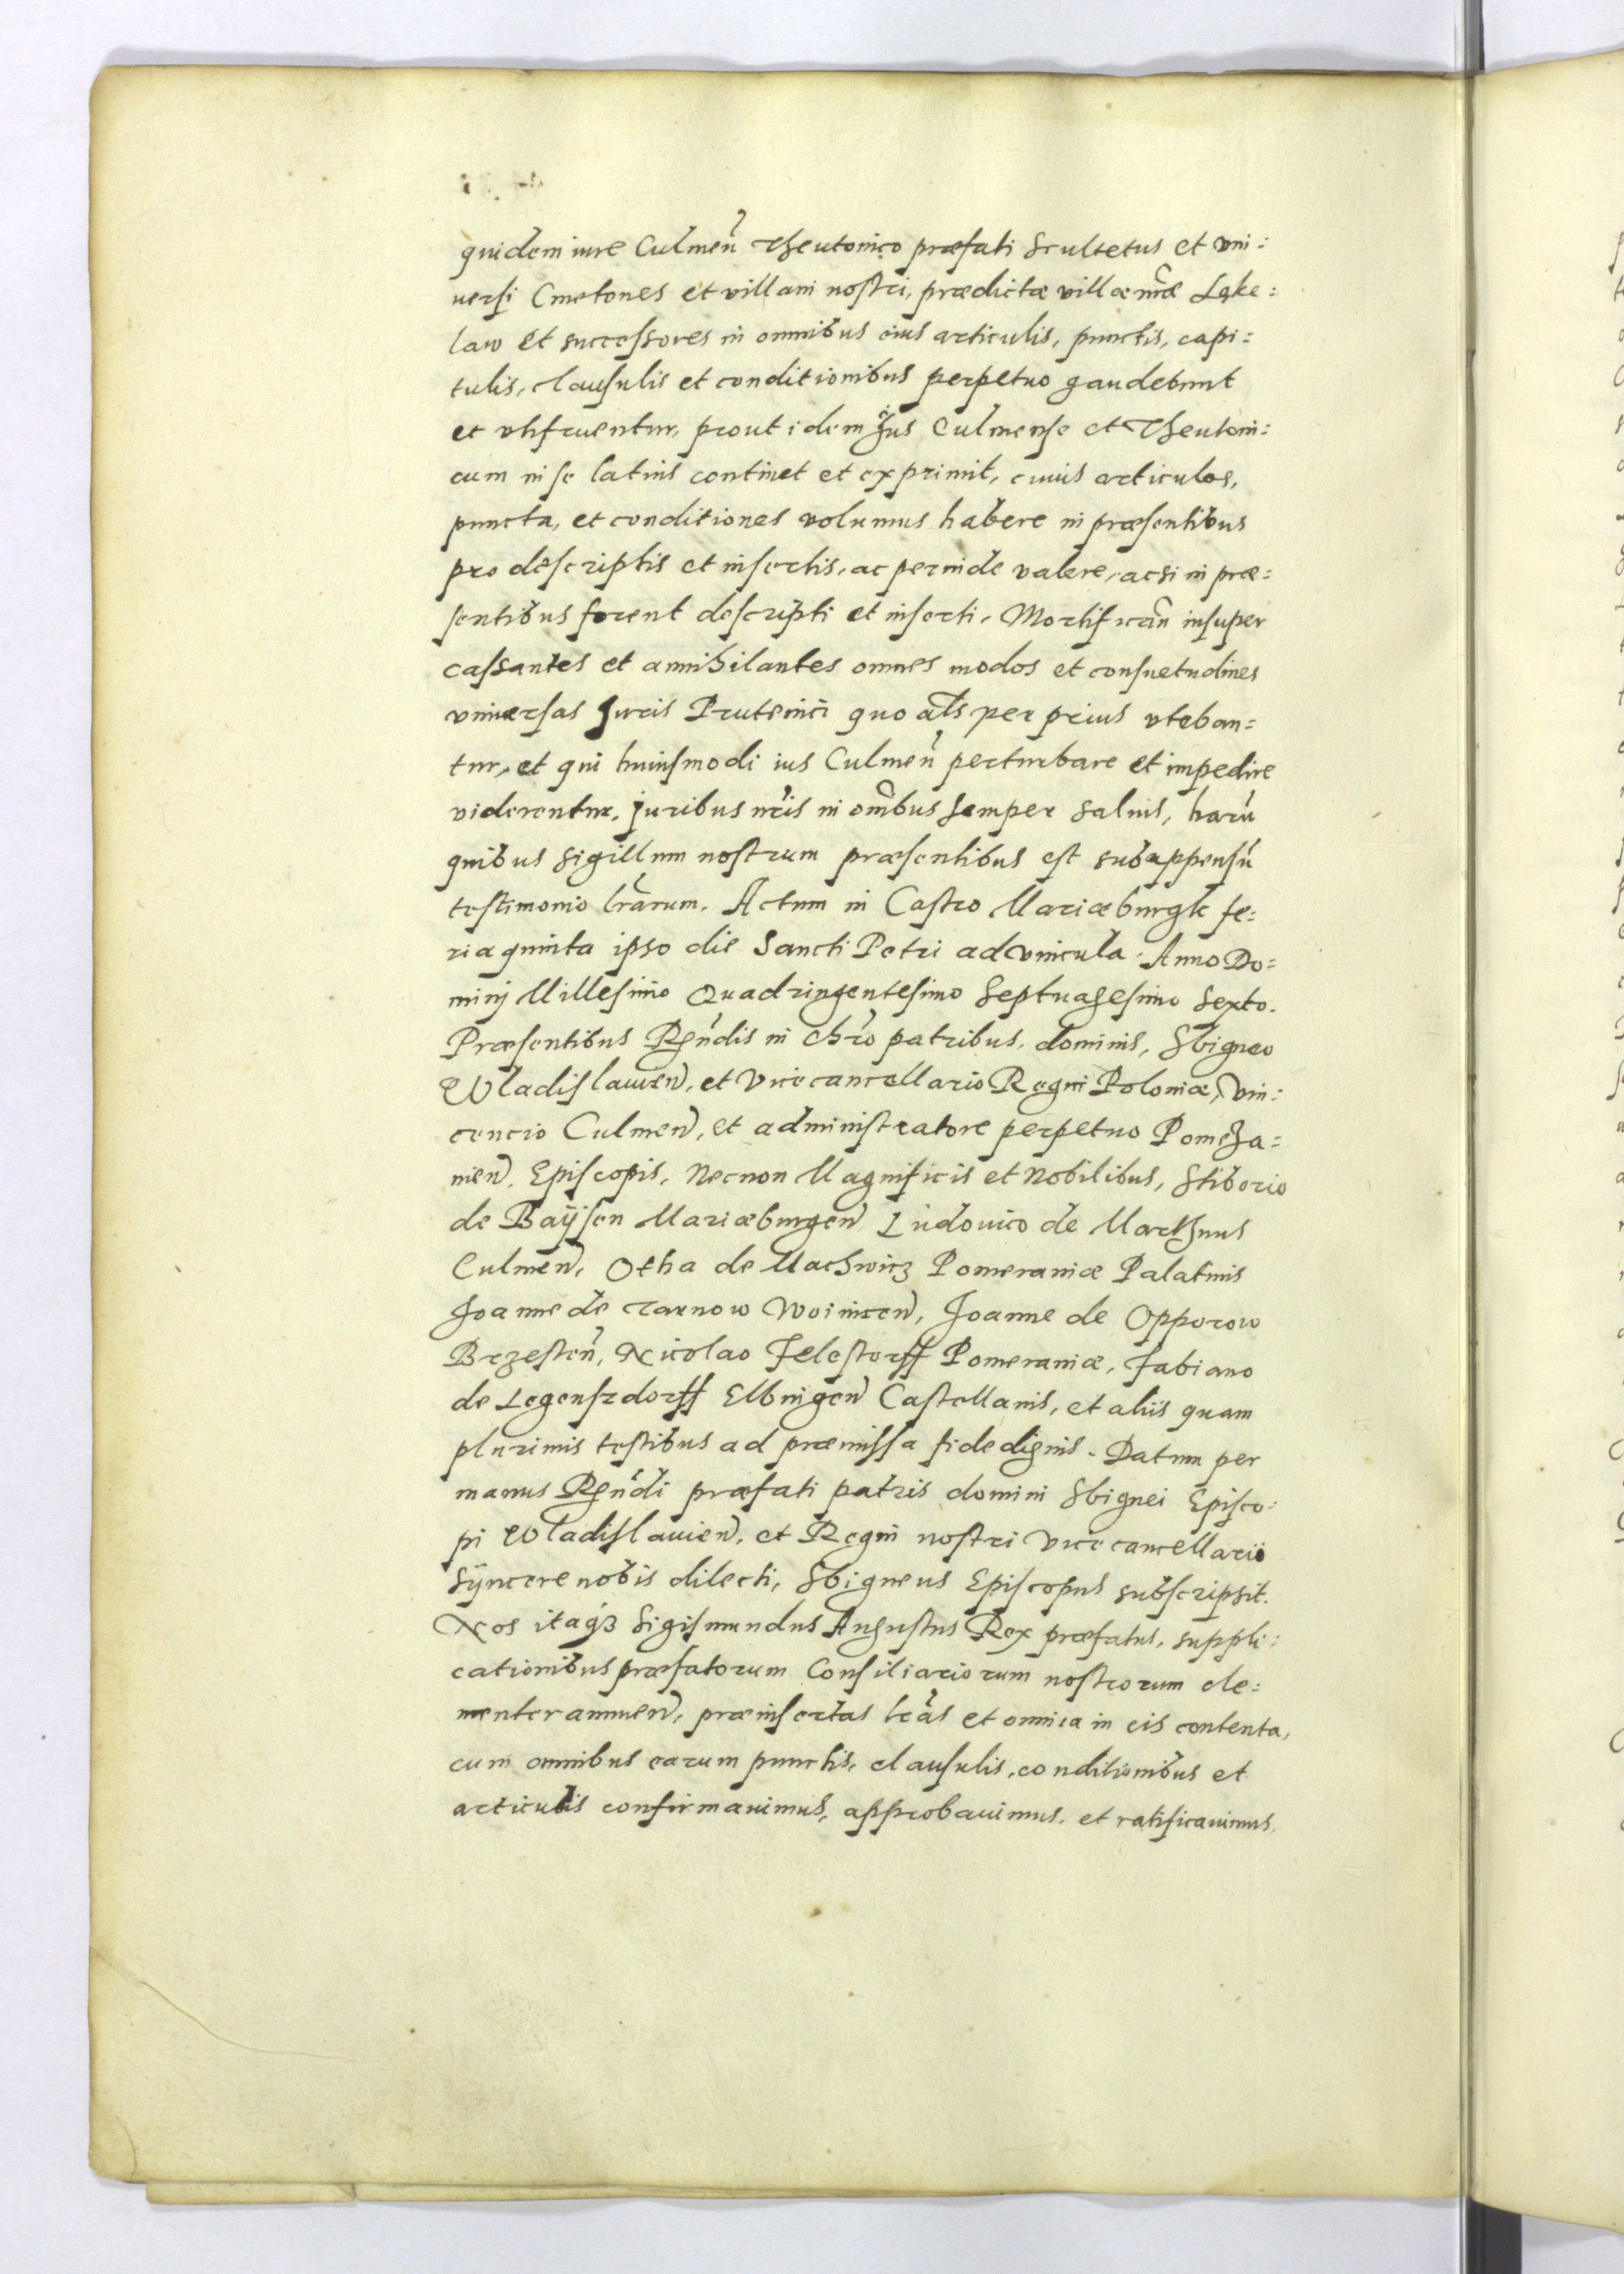 quidem iure Culmeñ Theutonico præfati Scultetus et vni:
uersi Cmetones et villani nostri, prædictæ villæ nr̃æ Leke:
law et successores in omnibus eius articulis, punctis, capi:
tulis, clausulis et conditionibus perpetuo gaudebunt
et vtifruentur, prout idem Jus Culmense et Theutoni:
cum in se latius continet et exprimit, cuius articulos,
puncta, et conditiones volumus habere in præsentibus
pro descriptis et insertis, ac perinde valere, acsi in præ:
sentibus forent descripti et inserti, Mortifican̄ insuper
cassantes et annihilantes omnes modos et consuetudines
vniuersas Juris Prutenici quo al̃s per prius vteban:
tur, et qui huiusmodi ius Culmeñ perturbare et impedire
viderentur, juribus nr̃is in om̃ibus semper saluis, harũ
quibus sigillum nostrum præsentibus est subappensũ
testimonio lr̃arum. Actum in Castro Mariæburgk fe:
ria quinta ipso die Sancti Petri ad vincula. Anno Do:
minj Millesimo Quadringentesimo Septuagesimo Sexto.
Præsentibus Reuñdis in Chr̃o patribus, dominis, Sbigneo
Wladislauieñ, et Vicecancellario Regni Poloniæ, Vin:
cencio Culmeñ, et administratore perpetuo Pomeza:
nieñ, Episcopis, Necnon Magnificis et Nobilibus, Stiborio
de Baÿsen Mariæburgeñ Ludouico de Marthuus
Culmeñ, Otha de Machwicz Pomeraniæ Palatinis
Joanne de Tarnow Woiniceñ, Joanne de Opporow
Brzesteñ, Nicolao Felestorff Pomeraniæ, Fabiano
de Legensrdorff Elbingeñ Castellanis, et aliis quam
plurimis testibus ad præmissa fide dignis. Datum per
manus Reuñdi præfati patris domini Sbignei Episco:
pi Wladislauieñ, et Regni nostri Vicecancellarii
sÿncere nobis dilecti, Sbigneus Episcopus subscripsit.
Nos itaqꝫ Sigismundus Augustus Rex præfatus, suppli:
cationibus præfatorum Consiliariorum nostrorum cle:
menter annueñ, præinsertas lr̃as et omnia in eis contenta,
cum omnibus earum punctis, clausulis, conditionibus et
articulis confirmauimus, approbauimus, et ratificauimus,